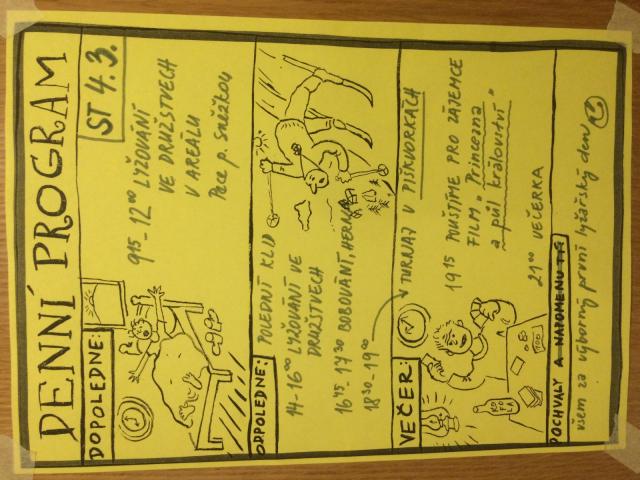 DENNÍ PROGRAM
DOPOLEDNE:
ST 4.3.
9¹⁵-12⁰⁰ LYŽOVÁNÍ
VE DRUŽSTVECH
V AREÁLU
Pec p. Sněžkou
ODPOLEDNE:
POLEDNÍ KLID
14-16⁰⁰ LYŽOVÁNÍ VE
DRUŽSTVECH
16⁴⁵-17³⁰ BOBOVÁNÍ,
18³⁰-19⁰⁰ TURNAJ V PIŠKVORKÁCH
VEČER:
19¹⁵ POUŠTÍME PRO ZÁJEMCE
FILM „Princezna
a půl království"
21⁰⁰ VEČERKA
KOFOLA
POCHVALY A NAPOMENUTÍ
všem za výborný první lyžařský den